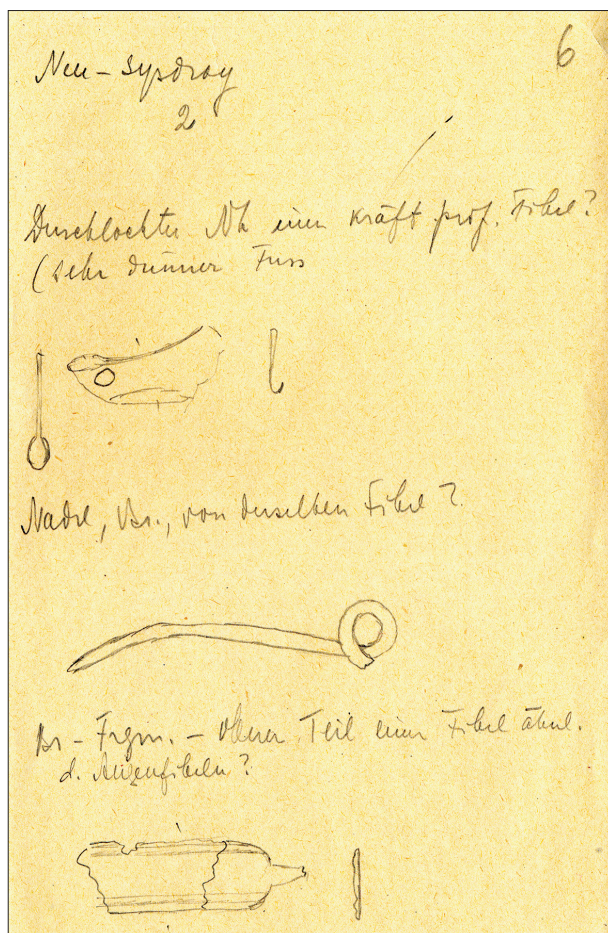 6
Neu-Sysdroy
2
Durchlochter Nh einer kräft. prof. Fibel?
(sehr dünner Fuss
Nadel, Br., von derselben Fibel?
Br-Frgm. - oberer Teil einer Fibel ähnl.
d. Augenfibeln?